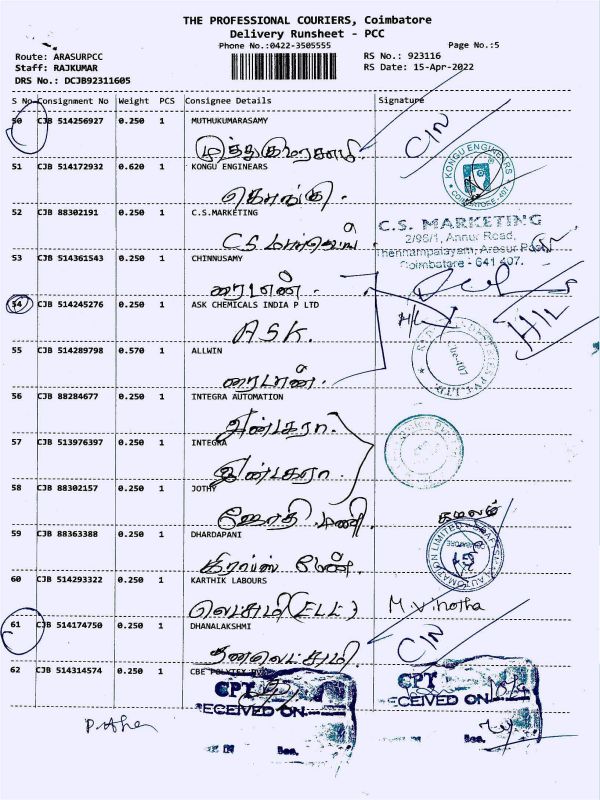 THE PROFESSIONAL COURIERS, Coimbatore
Delivery Runsheet - PCC
Phone No.:0422-3505555
Page No.:5
Route: ARASURPCC
RS No.: 923116
Staff: RAJKUMAR
RS Date: 15-Apr-2022
DRS No.: DCJB92311605
S No Consignment No Weight PCS Consignee Details Signature
50 CJB 514256927 0.250 1 MUTHUKUMARASAMY
முத்துகுமாரசாமி
C/N
51 CJB 514172932 0.620 1 KONGU ENGINEARS
KONGU ENGINEARS
COIMBATORE-407
52 CJB 88302191 0.250 1 C.S.MARKETING
CS மார்கெட்டிங்
C.S. MARKETING
2/96/1, Annur Road,
Thennampalayam, Arasur Post
Coimbatore - 641 407.
53 CJB 514361543 0.250 1 CHINNUSAMY
54 CJB 514245276 0.250 1 ASK CHEMICALS INDIA P LTD
ASK.
H/L
H/L
55 CJB 514289798 0.570 1 ALLWIN
PVT. LTD.
Cbe-407
56 CJB 88284677 0.250 1 INTEGRA AUTOMATION
இன்டகரா
57 CJB 513976397 0.250 1 INTEGRA
இன்டகரா
58 CJB 88302157 0.250 1 JOTHY
ஜோதி மணி
கமலம்
59 CJB 88363388 0.250 1 DHARDAPANI
AUTOMATION LIMITED
60 CJB 514293322 0.250 1 KARTHIK LABOURS
M. Vinotha
61 CJB 514174750 0.250 1 DHANALAKSHMI
தனலெட்சுமி
C/N
62 CJB 514314574 0.250 1 CBE POLYTEX
CPT
RECEIVED ON
CPT
RECEIVED ON